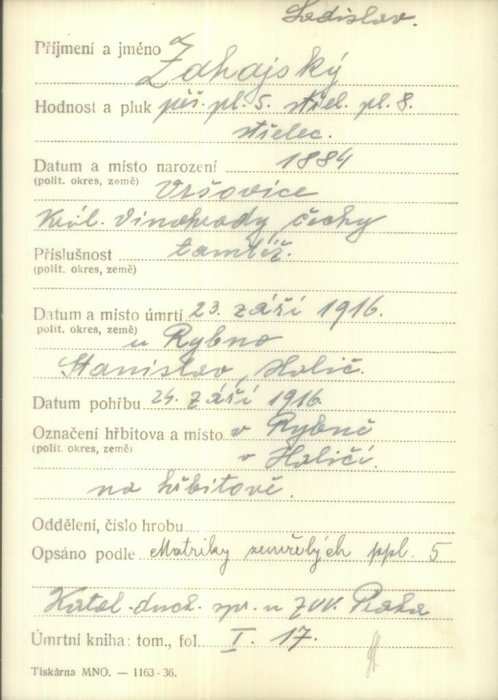 Ladislav.
Příjmení a jméno Zahajský
Hodnost a pluk pěš. pl. 5. střel. pl. 8.
střelec.
Datum a místo narození 1884
(polit. okres, země) Vršovice
Král. Vinohrady, Čechy
Příslušnost tamtéž.
(polit. okres, země)
Datum a místo úmrtí 23. září 1916.
polit. okres, země) u Rybno
Stanislav, Halič.
Datum pohřbu 24. září 1916
Označení hřbitova a místo v Rybně
(polit. okres, země) v Haliči.
na hřbitově.
Oddělení, číslo hrobu
Opsáno podle Matriky zemřelých ppl. 5
Katol. duch. spr. u ZVV. Praha
Úmrtní kniha: tom., fol. I. 17.
Tiskárna MNO. — 1163-36.